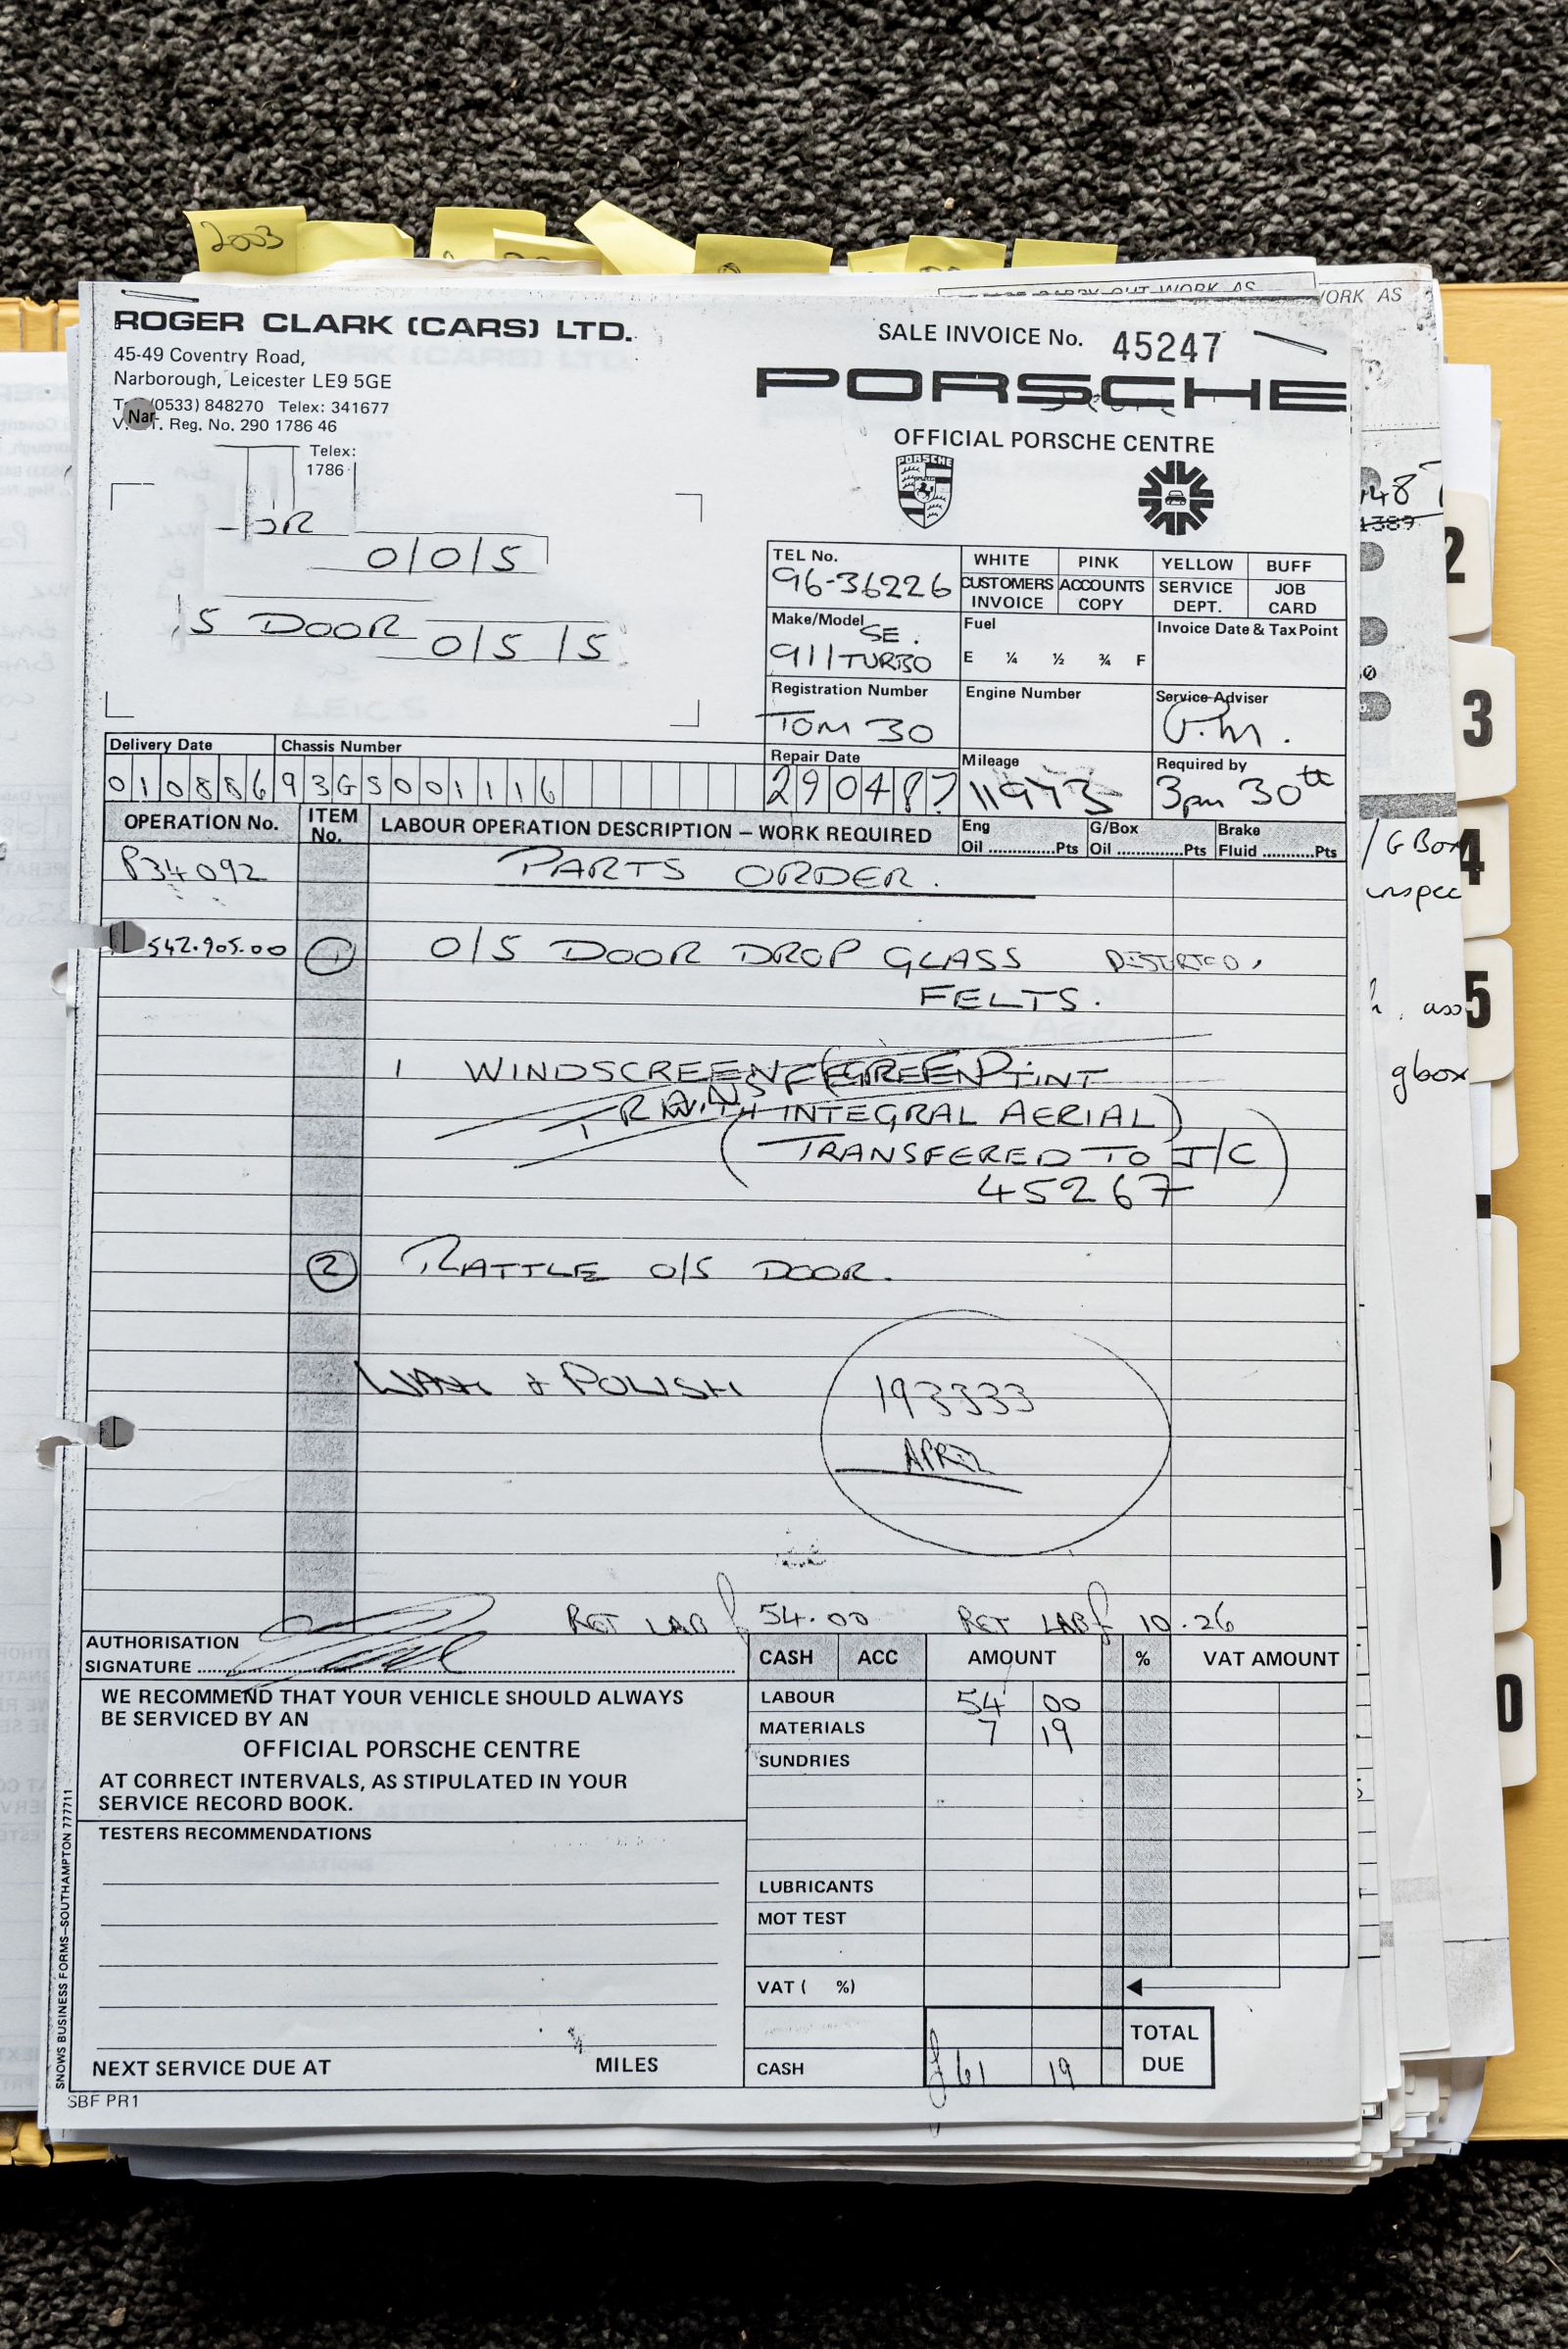 2003
ORK AS
ROGER CLARK (CARS) LTD.
45-49 Coventry Road,
Narborough, Leicester LE9 5GE
(0533) 848270 Telex: 341677
Nar
T. Reg. No. 290 1786 46
Telex:
1786
SALE INVOICE No. 45247
PORSCHE
OFFICIAL PORSCHE CENTRE
PORSCHE
O/O/S
S DOOR
O/S/S
TEL No.
96-36226
WHITE PINK YELLOW BUFF
CUSTOMERS INVOICE ACCOUNTS COPY SERVICE DEPT. JOB CARD
Make/Model
SE.
911 TURBO
Fuel
E ¼ ½ ¾ F
Invoice Date & Tax Point
Registration Number
TOM 30
Engine Number
Service Adviser
Delivery Date
010886
Chassis Number
93GS001116
Repair Date
290487
Mileage
11973
Required by
3pm 30th
OPERATION No.
ITEM No.
LABOUR OPERATION DESCRIPTION – WORK REQUIRED
Eng Oil ..............Pts
G/Box Oil ..............Pts
Brake Fluid ...........Pts
834092 PARTS ORDER.
542.905.00 1 O/S DOOR DROP GLASS DISTORTED,
FELTS.
1 WINDSCREEN (GREEN TINT
WITH INTEGRAL AERIAL)
(TRANSFERED TO J/C
45267)
2 RATTLE O/S DOOR.
WASH & POLISH
193333
APRIL
RET LAB £ 54.00 RET LAB £ 10.26
AUTHORISATION
SIGNATURE
CASH ACC AMOUNT % VAT AMOUNT
WE RECOMMEND THAT YOUR VEHICLE SHOULD ALWAYS
BE SERVICED BY AN
OFFICIAL PORSCHE CENTRE
AT CORRECT INTERVALS, AS STIPULATED IN YOUR
SERVICE RECORD BOOK.
LABOUR 54 00
MATERIALS 7 19
SUNDRIES
TESTERS RECOMMENDATIONS
LUBRICANTS
MOT TEST
VAT ( %)
TOTAL
DUE
CASH £61 19
NEXT SERVICE DUE AT MILES
SNOWS BUSINESS FORMS—SOUTHAMPTON 777711
SBF PR1
/ G Box
inspec
gbox
2
3
4
5
0